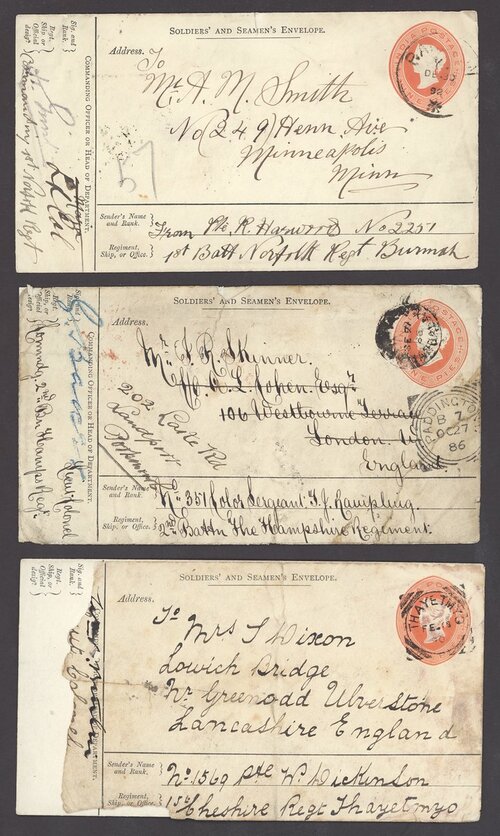 SOLDIERS' AND SEAMEN'S ENVELOPE.
Sig. and Rank.
Regt. Ship, or Official desigⁿ
COMMANDING OFFICER OR HEAD OF DEPARTMENT.
Lt Col
Commanding 1st Norfolk Regt
INDIA POSTAGE
Address.
To
Mr A. M. Smith
No (249) Henn Ave
Minneapolis
Minn
57
Sender's Name and Rank.
From Pte R. Haywood No 2251
Regiment, Ship, or Office.
1st Batt Norfolk Regt Burmah
SOLDIERS' AND SEAMEN'S ENVELOPE.
Sig. and Rank.
Regt. Ship, or Official desigⁿ
COMMANDING OFFICER OR HEAD OF DEPARTMENT.
Lieut Colonel
Commdg 2nd Bn Hamps Regt
Address.
Mr J. R. Skinner.
C/o R. L. Cohen. Esqr
106 Westbourne Terrace
London. W
England
202 Lake Rd
Landport
Portsmouth
PADDINGTON
B 7
OC 27
86
Sender's Name and Rank.
No 351 Color Sergeant T. J. Rampling.
Regiment, Ship, or Office.
2nd Battn The Hampshire Regiment.
SOLDIERS' AND SEAMEN'S ENVELOPE.
Sig. and Rank.
Regt. Ship, or Official desigⁿ
DEPARTMENT.
Lt Colonel
THAYETMYO
FE
Address.
To
Mrs T Dixon
Lowick Bridge
Nr Greenodd Ulverstone
Lancashire England
Sender's Name and Rank.
No 1569 Pte W. Dickinson
Regiment, Ship, or Office.
1st Cheshire Regt Thayetmyo